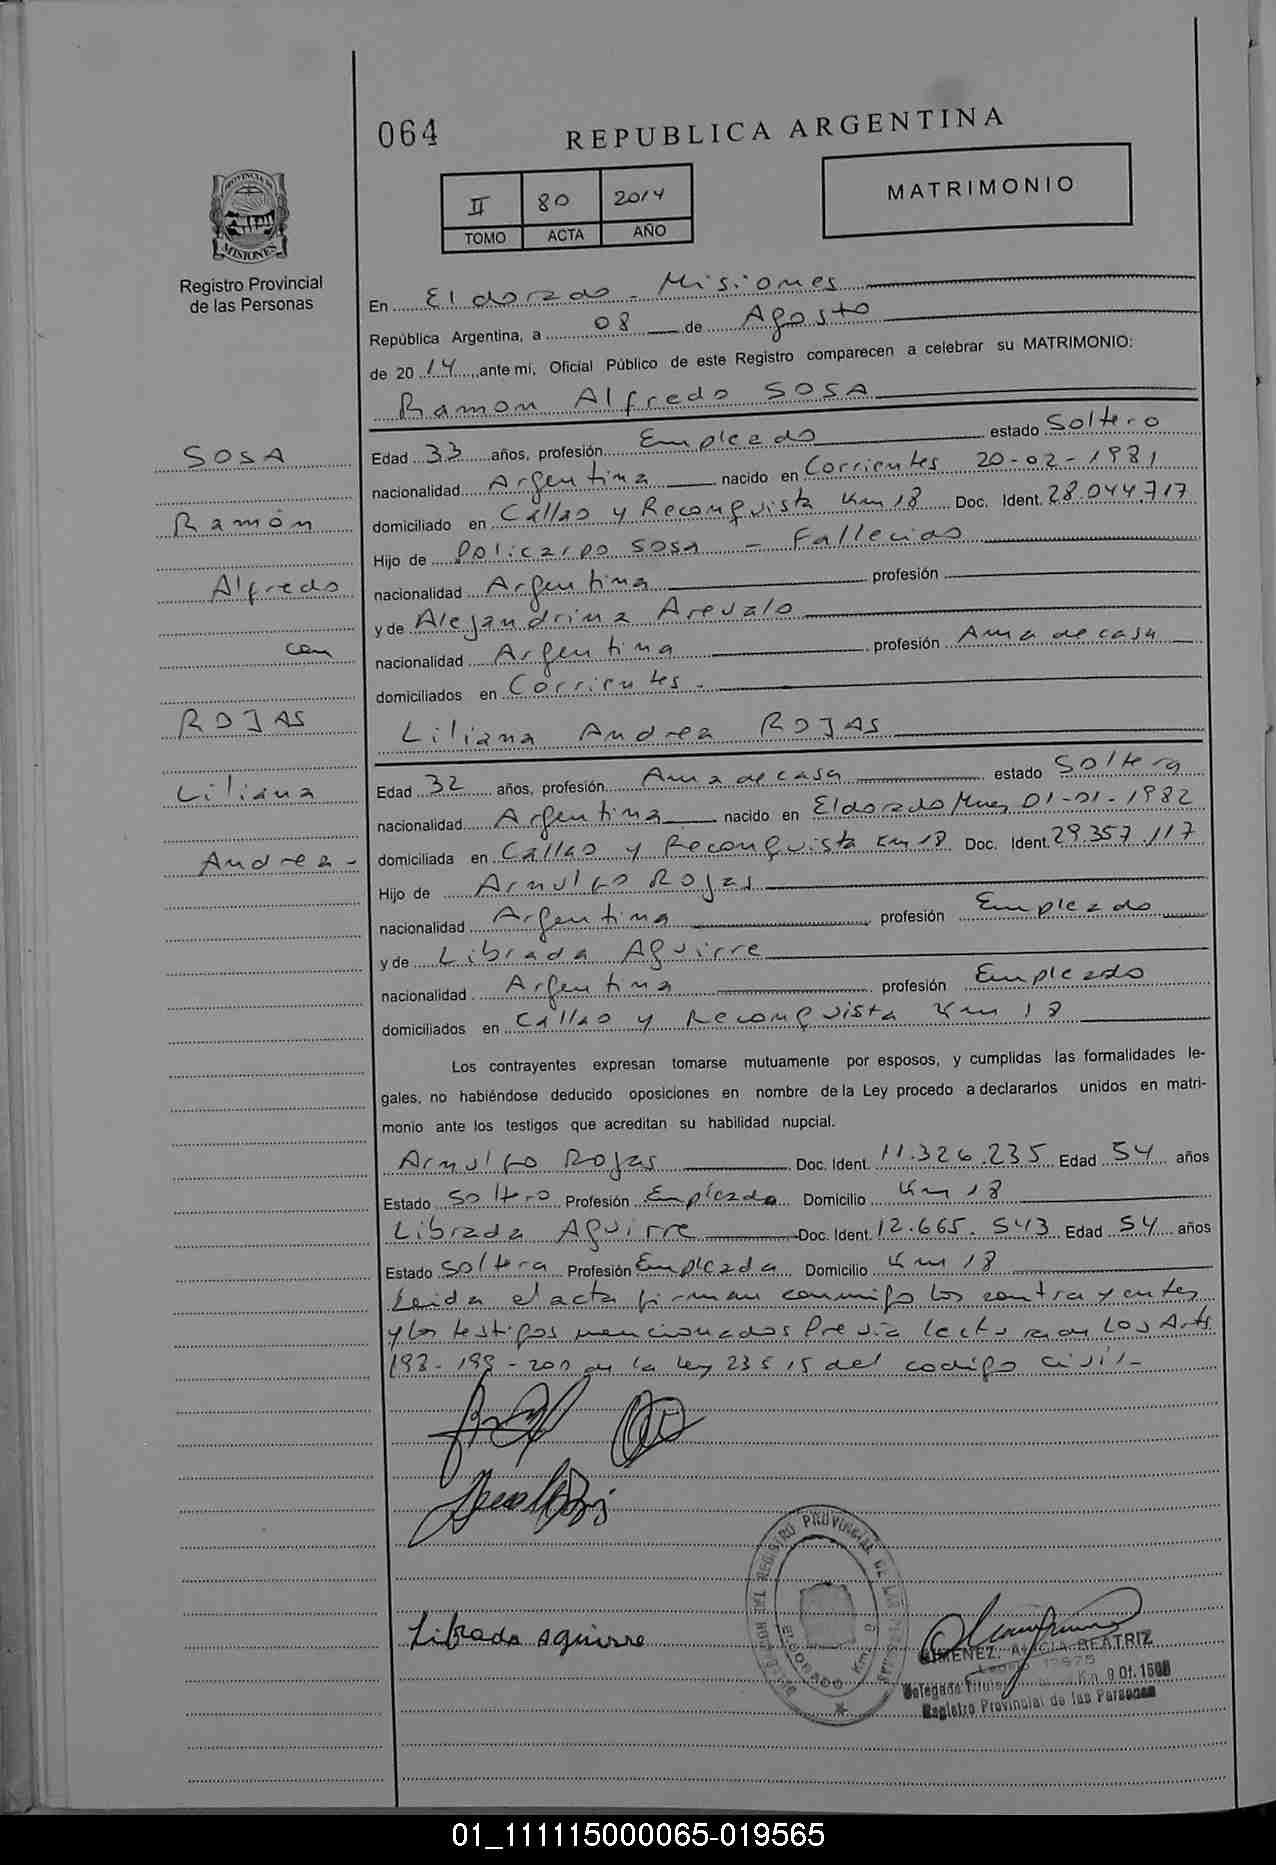 064
REPUBLICA ARGENTINA
II 80 2014
TOMO ACTA AÑO
MATRIMONIO
PROVINCIA DE
MISIONES
Registro Provincial
de las Personas
En Eldorado - Misiones
República Argentina, a 08 de Agosto
de 2014, ante mi, Oficial Público de este Registro comparecen a celebrar su MATRIMONIO:
Ramon Alfredo SOSA
SOSA
Ramón
Alfredo
con
ROJAS
Liliana
Andrea -
Edad 33 años, profesión Empleado estado Soltero
nacionalidad Argentina nacido en Corrientes 20-02-1981
domiciliado en Callao y Reconquista Km 18 Doc. Ident. 28.044.717
Hijo de Policarpo Sosa - Fallecido
nacionalidad Argentina profesión
y de Alejandrina Arevalo
nacionalidad Argentina profesión Ama de casa
domiciliados en Corrientes -
Liliana Andrea ROJAS
Edad 32 años, profesión Ama de casa estado Soltera
nacionalidad Argentina nacido en Eldorado Mnes 01-01-1982
domiciliada en Callao y Reconquista Km 18 Doc. Ident. 29.357.117
Hijo de Arnulfo Rojas
nacionalidad Argentina profesión Empleado
y de Librada Aguirre
nacionalidad Argentina profesión Empleado
domiciliados en Callao y Reconquista Km 18
Los contrayentes expresan tomarse mutuamente por esposos, y cumplidas las formalidades le-
gales, no habiéndose deducido oposiciones en nombre de la Ley procedo a declararlos unidos en matri-
monio ante los testigos que acreditan su habilidad nupcial.
Arnulfo Rojas Doc. Ident. 11.326.235 Edad 54 años
Estado Soltero Profesión Empleado Domicilio Km 18
Librada Aguirre Doc. Ident. 12.665.543 Edad 54 años
Estado Soltera Profesión Empleada Domicilio Km 18
Leida el acta firman conmigo los contrayentes
y los testigos mencionados Previa lectura de los Arts
198-199-200 de la ley 23515 del codigo civil-
Librada aguirre
REGISTRO PROVINCIAL DE LAS PERSONAS
ELDORADO Km. 9
GIMENEZ, ALICIA BEATRIZ
Delegada Titular Km. 9 Of. 1608
Registro Provincial de las Personas
01_111115000065-019565